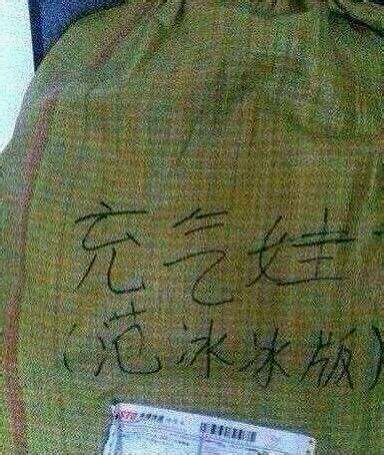 充气娃
(范冰冰版)